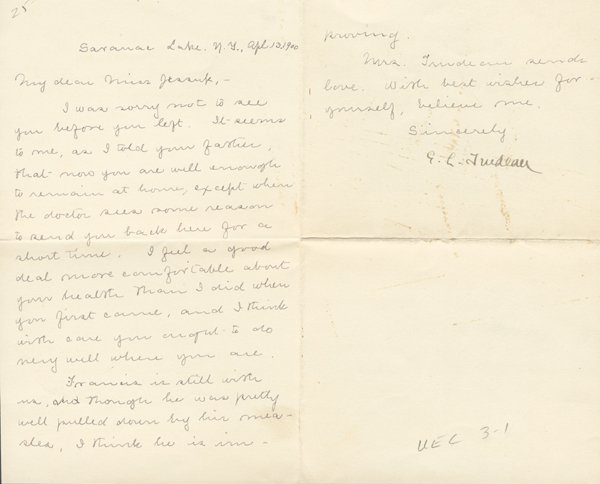 25
Saranac Lake, N.Y., Apl. 13, 1900
My dear Miss Jessuk,-
I was sorry not to see
you before you left. It seems
to me, as I told your father,
that now you are well enough
to remain at home, except when
the doctor sees some reason
to send you back here for a
short time. I feel a good
deal more comfortable about
your health than I did when
you first came, and I think
with care you ought to do
very well where you are.
Francis is still with
us, and though he was pretty
well pulled down by his mea-
sles, I think he is im-
proving.
Mrs. Trudeau sends
love. With best wishes for
yourself, believe me.
Sincerely
E. L. Trudeau
UEC 3-1